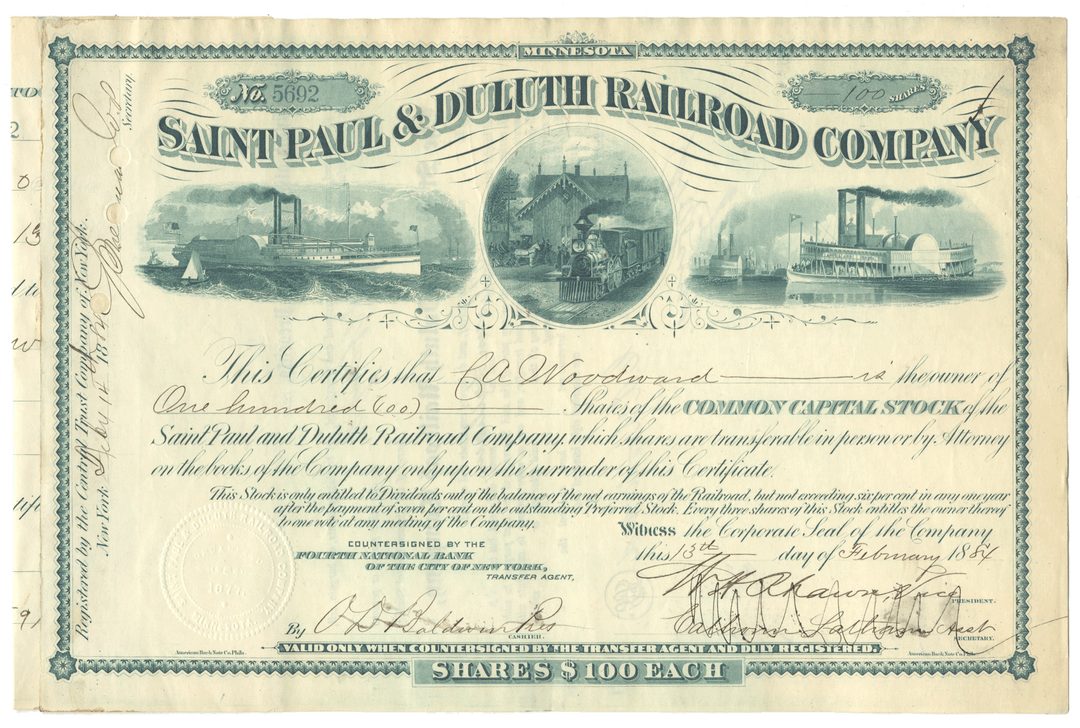 MINNESOTA
No. 5692
100 SHARES
SAINT PAUL & DULUTH RAILROAD COMPANY
This Certifies that C A Woodward is the owner of
One hundred (100) Shares of the COMMON CAPITAL STOCK of the
Saint Paul and Duluth Railroad Company, which shares are transferable in person or by Attorney
on the books of the Company only upon the surrender of this Certificate.
This Stock is only entitled to Dividends out of the balance of the net earnings of the Railroad, but not exceeding six per cent in any one year
after the payment of seven per cent on the outstanding Preferred Stock. Every three shares of this Stock entitles the owner thereof
to one vote at any meeting of the Company.
Witness the Corporate Seal of the Company
this 13th day of February 1884
COUNTERSIGNED BY THE
FOURTH NATIONAL BANK
OF THE CITY OF NEW YORK,
TRANSFER AGENT,
By O D Baldwin Pres
CASHIER.
Vice
PRESIDENT.
Asst
SECRETARY.
VALID ONLY WHEN COUNTERSIGNED BY THE TRANSFER AGENT AND DULY REGISTERED.
American Bank Note Co. Phila.
American Bank Note Co. Phila.
SHARES $100 EACH
Registered by the Central Trust Company of New York.
New York Feby 14 1884
Secretary.